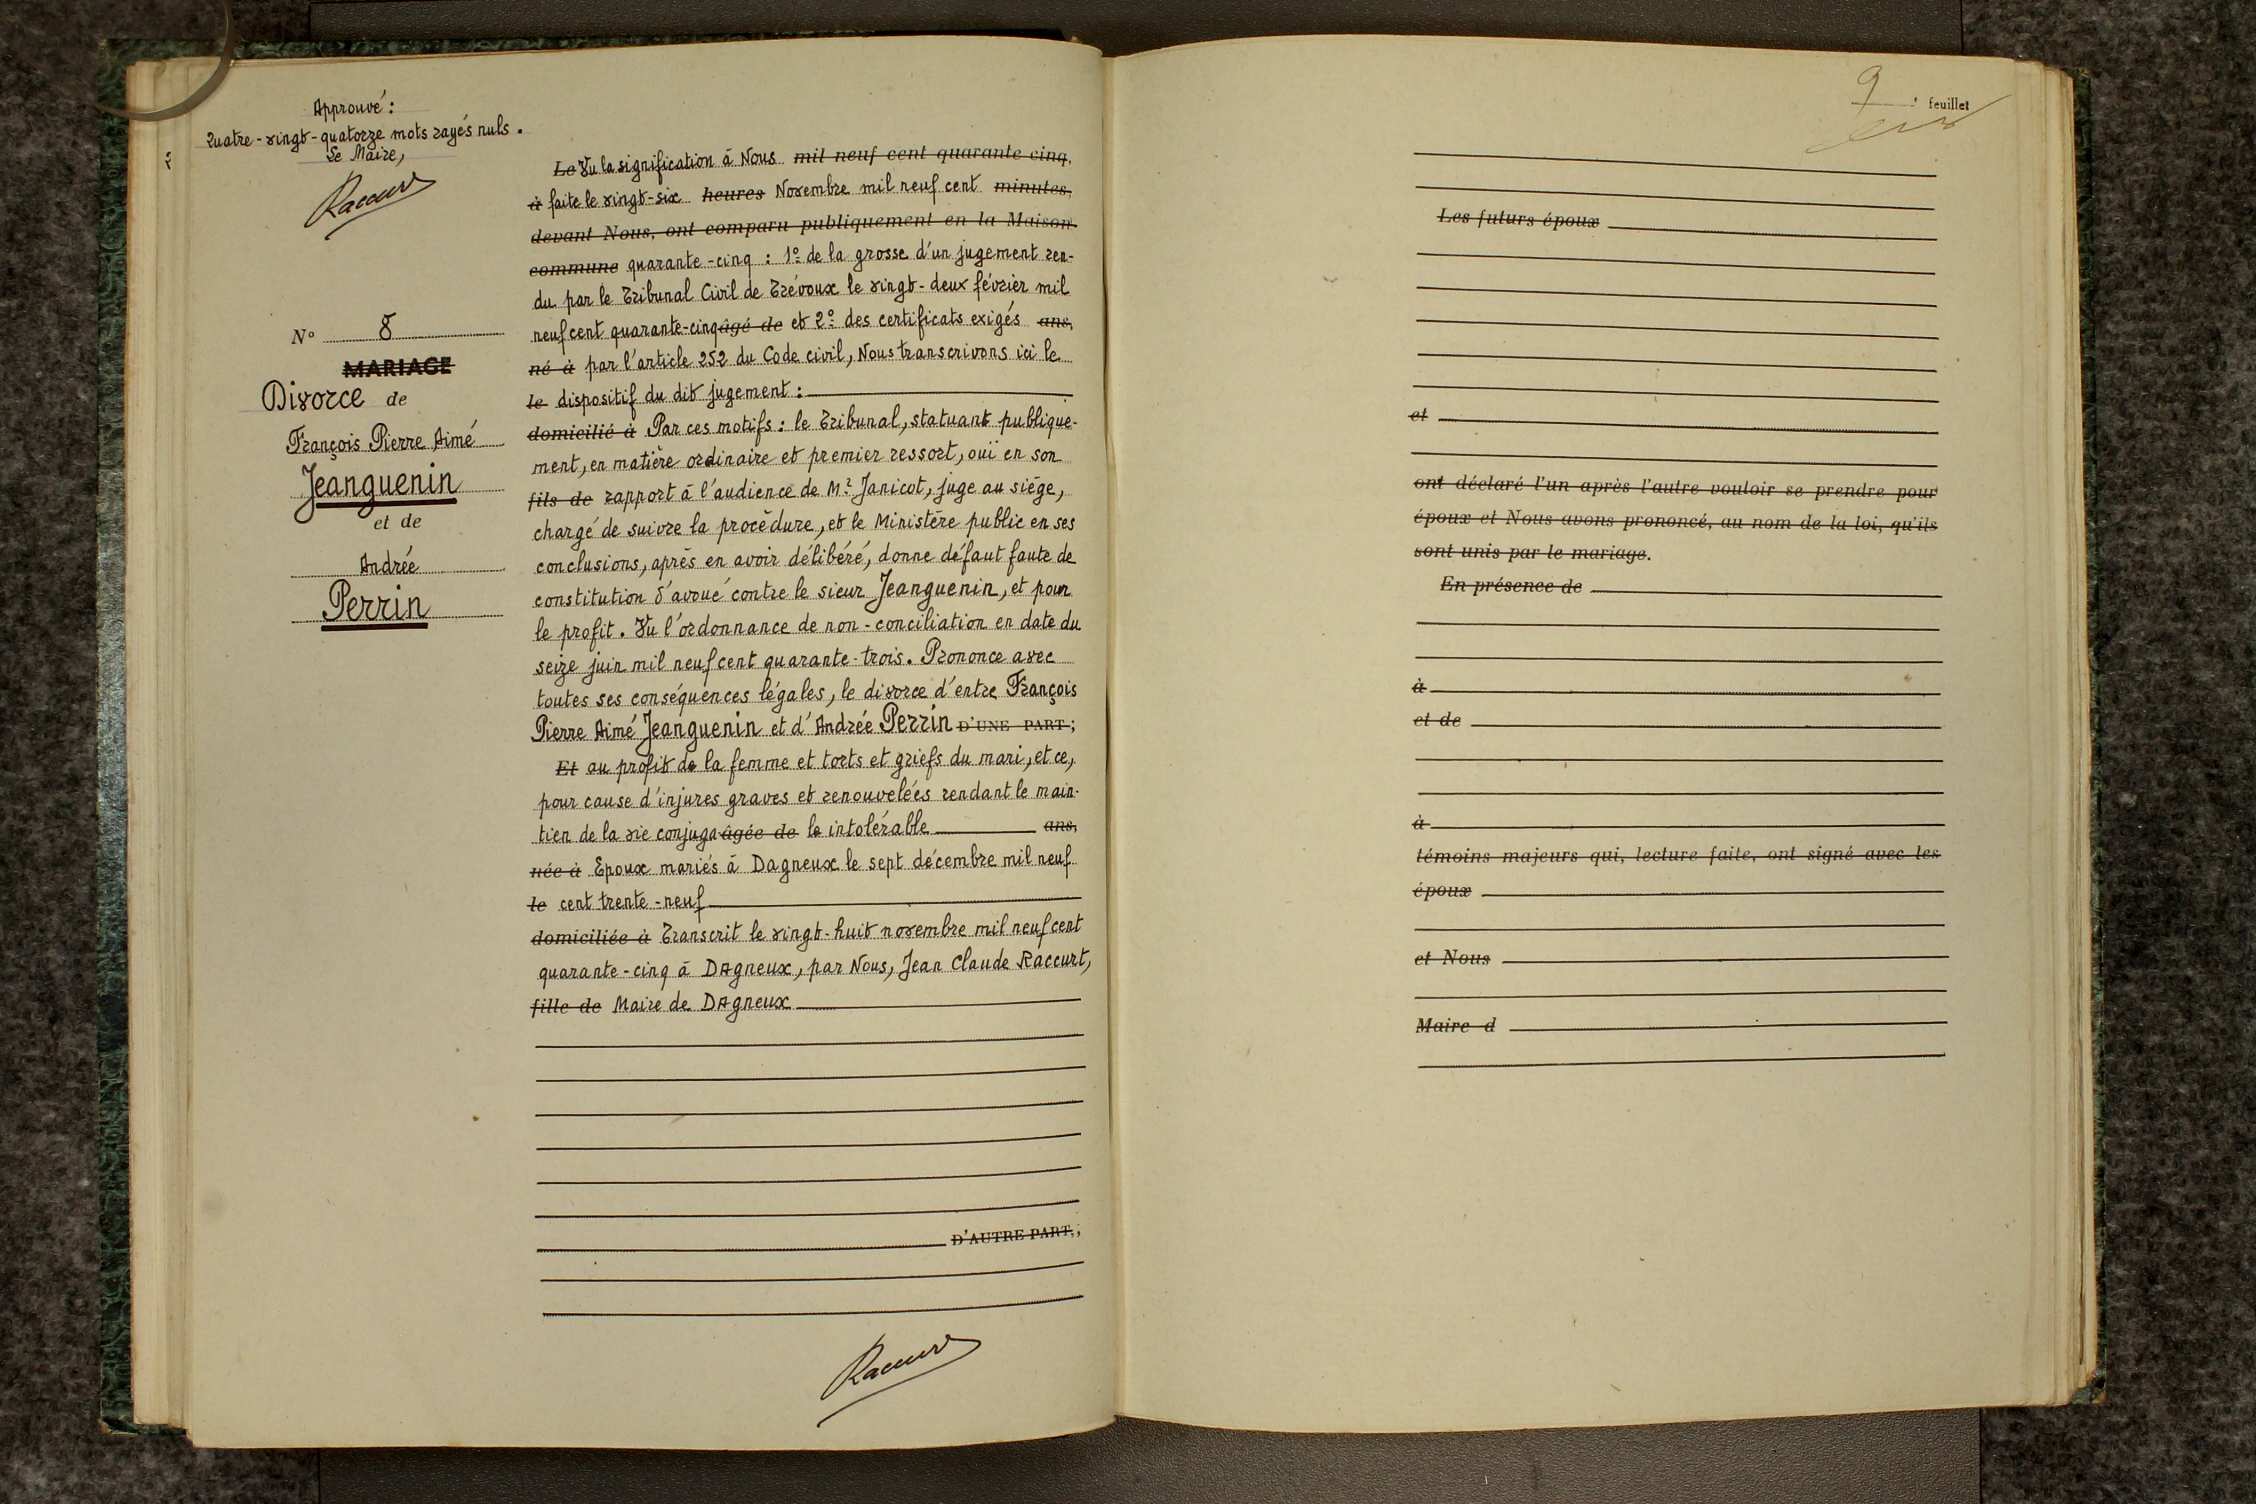 Approuvé :
Quatre-vingt-quatorze mots rayés nuls.
Le Maire,
Raccurt
N° 8
MARIAGE
Divorce de
François Pierre Aimé
Jeanguenin
et de
Andrée
Perrin
Le Vu la signification à Nous mil neuf cent quarante cinq,
à faite le vingt-six heures Novembre mil neuf cent minutes,
devant Nous, ont comparu publiquement en la Maison
commune quarante-cinq : 1° de la grosse d'un jugement ren-
du par le Tribunal Civil de Trévoux le vingt-deux février mil
neuf cent quarante-cinq âgé de et 2° des certificats exigés ans,
né à par l'article 252 du Code civil, Nous transcrivons ici le
le dispositif du dit jugement :
domicilié à Par ces motifs : le Tribunal, statuant publique-
ment, en matière ordinaire et premier ressort, ouï en son
fils de rapport à l'audience de Mr Janicot, juge au siège,
chargé de suivre la procèdure, et le Ministère public en ses
conclusions, après en avoir délibéré, donne défaut faute de
constitution d'avoué contre le sieur Jeanguenin, et pour
le profit. Vu l'ordonnance de non-conciliation en date du
seize juin mil neuf cent quarante-trois. Prononce avec
toutes ses conséquences légales, le divorce d'entre François
Pierre Aimé Jeanguenin et d'Andrée Perrin D'UNE PART;
Et au profit de la femme et torts et griefs du mari, et ce,
pour cause d'injures graves et renouvelées rendant le main-
tien de la vie conjuga âgée de le intolérable ans,
née à Epoux mariés à Dagneux le sept décembre mil neuf
le cent trente-neuf
domiciliée à Transcrit le vingt-huit novembre mil neuf cent
quarante-cinq à Dagneux, par Nous, Jean Claude Raccurt,
fille de Maire de Dagneux
D'AUTRE PART,;
Raccurt
9 e feuillet
Les futurs époux
et
ont déclaré l'un après l'autre vouloir se prendre pour
époux et Nous avons prononcé, au nom de la loi, qu'ils
sont unis par le mariage.
En présence de
à
et de
à
témoins majeurs qui, lecture faite, ont signé avec les
époux
et Nous
Maire d